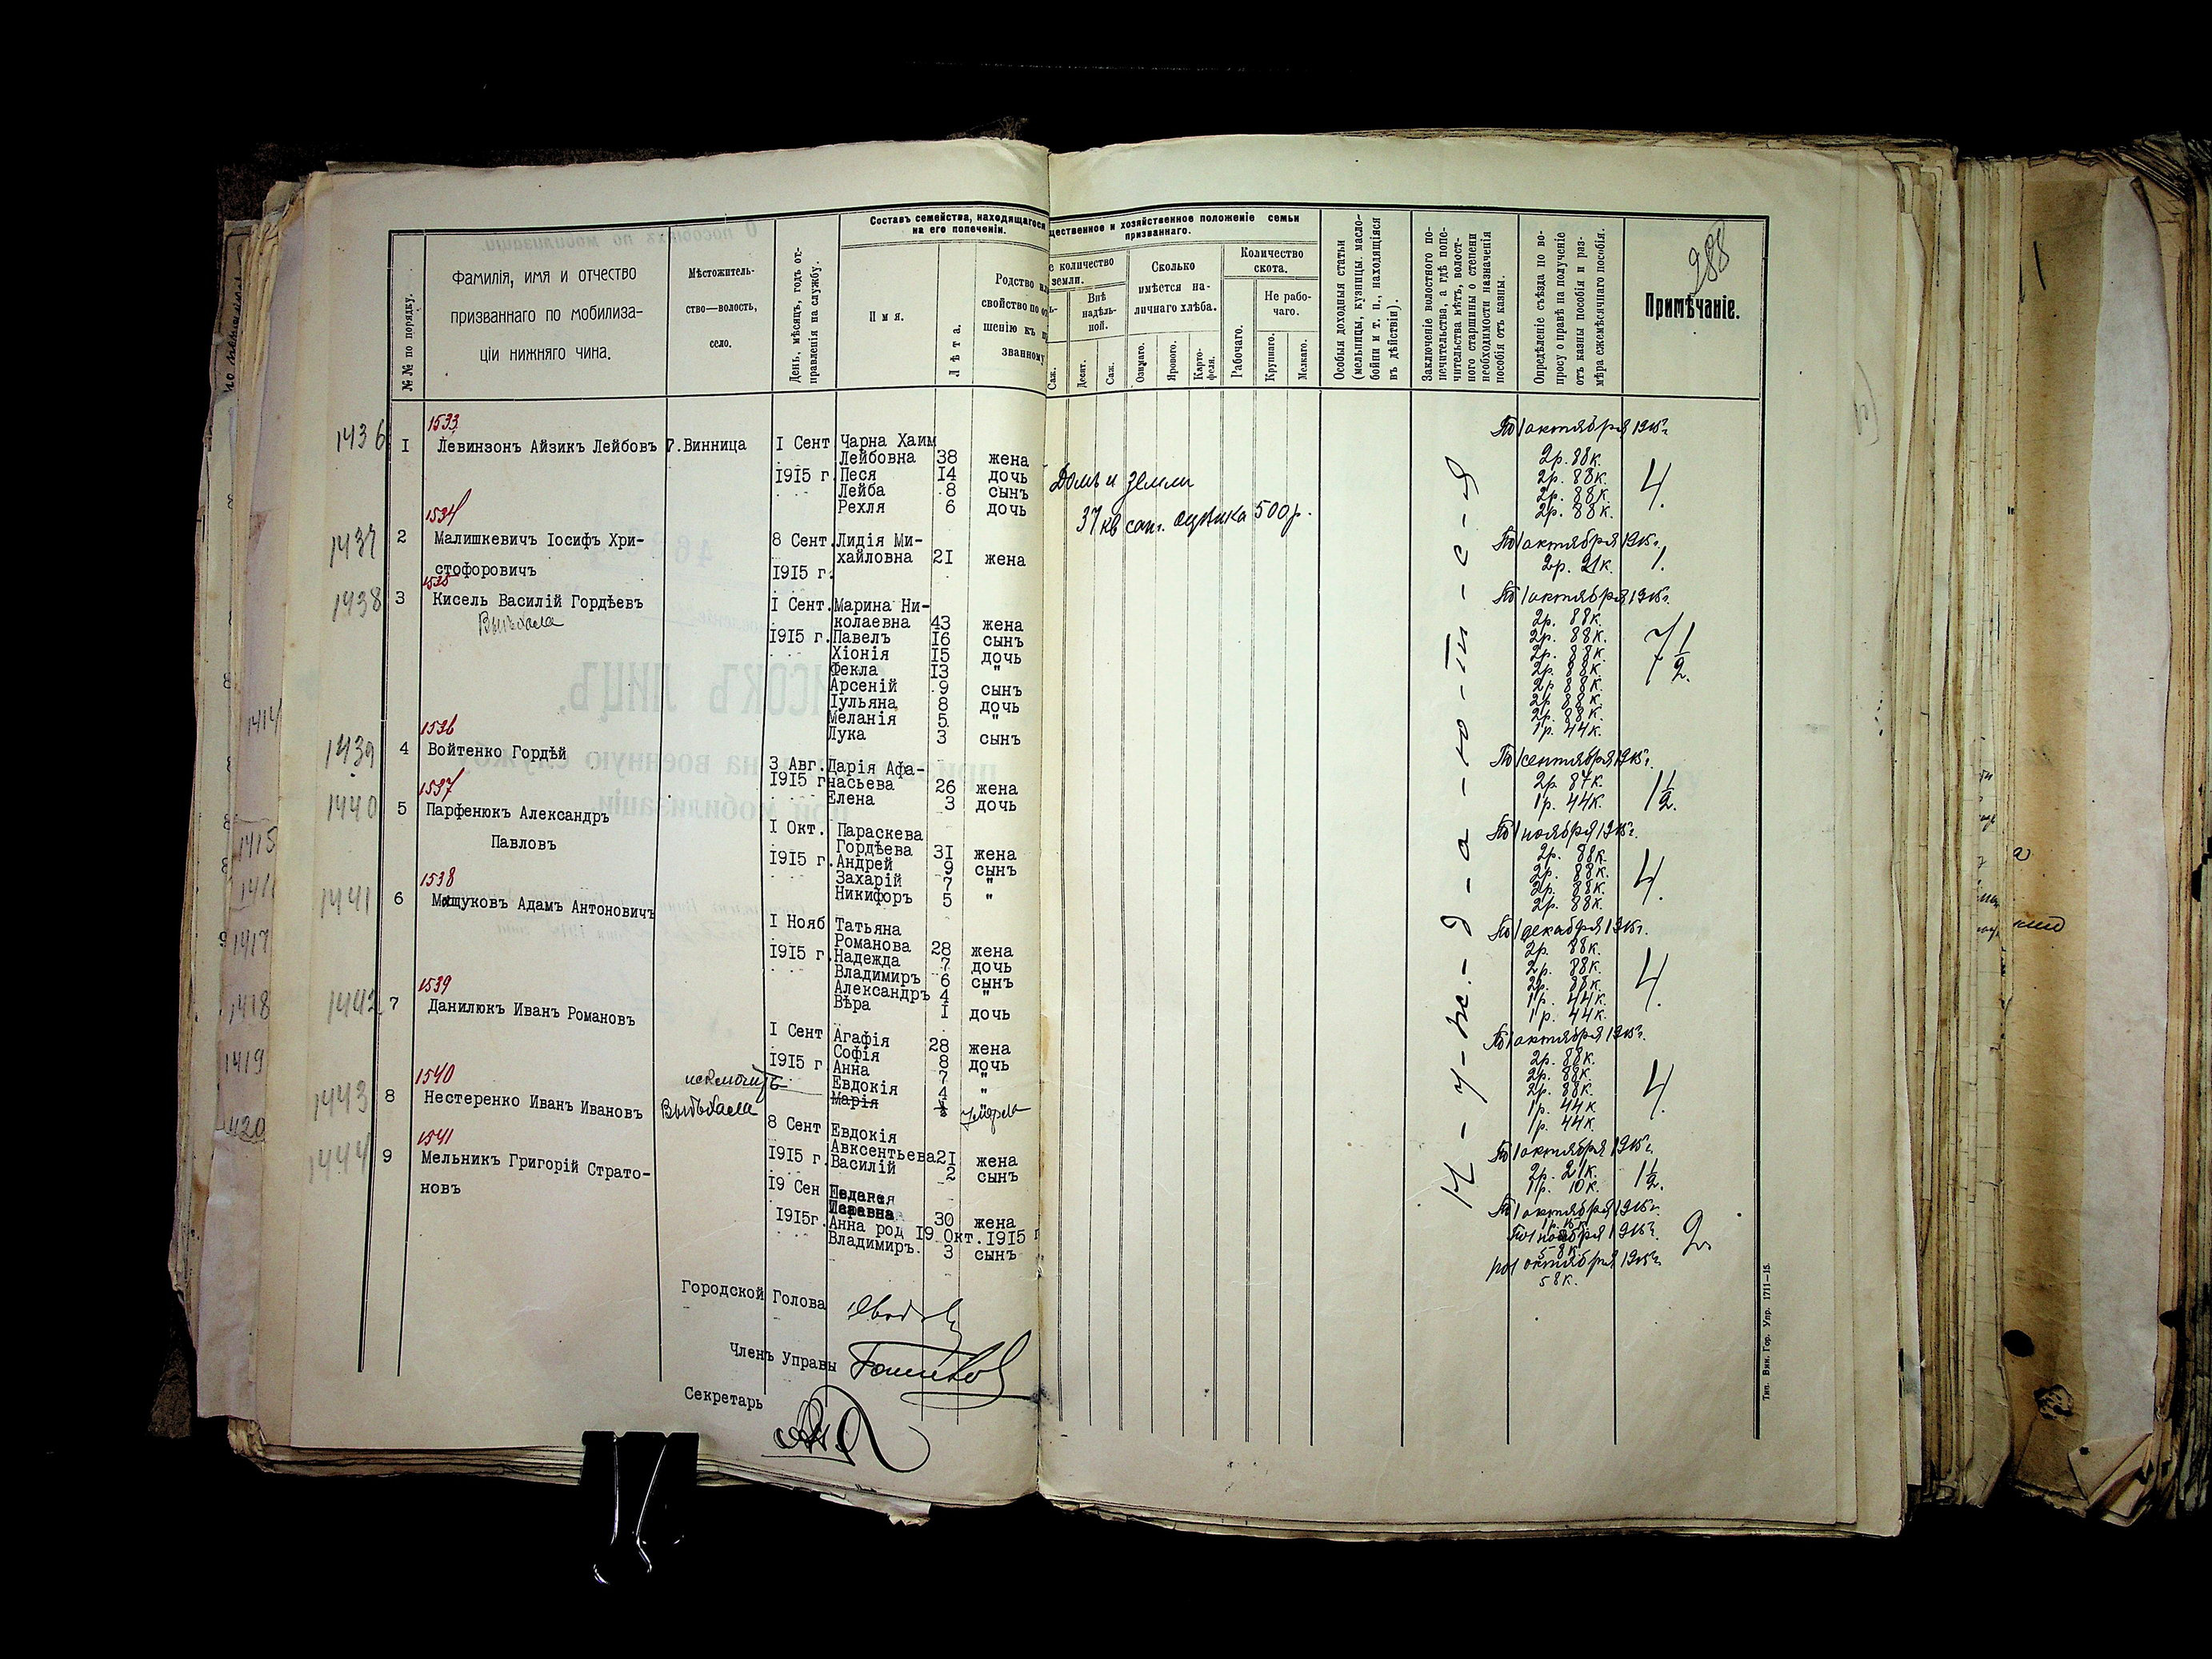 288
№№ по порядку.
Фамилія, имя и отчество
призваннаго по мобилиза-
ціи нижняго чина.
Мѣстожитель-
ство—волость,
село.
День, мѣсяцъ, годъ от-
правленія на службу.
Составъ семейства, находящагося
на его попеченіи.
Имя.
Лѣта.
Родство или
свойство по от
шенію къ п
званному
щественное и хозяйственное положеніе семьи
призваннаго.
е количество
земли.
Внѣ
надѣль-
ной.
Саж.
Десят.
Саж.
Сколько
имѣется на-
личнаго хлѣба.
Озимаго.
Ярового.
Карто-
феля.
Количество
скота.
Рабочаго.
Не рабо-
чаго.
Крупнаго.
Мелкаго.
Особыя доходныя статьи
(мельницы, кузницы, масло-
бойни и т. п., находящіяся
въ дѣйствіи).
Заключеніе волостного по-
печительства, а гдѣ попе-
чительства нѣтъ, волост-
ного старшины о степени
необходимости назначенія
пособія отъ казны.
Опредѣленіе съѣзда по во-
просу о правѣ на полученіе
отъ казны пособія и раз-
мѣра ежемѣсячнаго пособія.
Примѣчаніе.
1436
1533
1 Левинзонъ Айзикъ Лейбовъ Г.Винница 1 Сент Чарна Хаим
Лейбовна 38 жена
1915 г. Песя 14 дочь
Лейба 8 сынъ
Рехля 6 дочь
Домъ и земли
37 кв саж. оцѣнка 500 р.
По 1 октября 1915 г.
2р. 88к.
2р. 88к.
2р. 88к.
2р. 88к.
4.
1437
1534
2 Малишкевичъ Іосифъ Хри-
стофоровичъ
8 Сент. Лидія Ми-
хайловна 21 жена
1915 г.
По 1 октября 1915 г.
2р. 21к. 1.
1438
1535
3 Кисель Василій Гордѣевъ
Выѣхала
1 Сент. Марина Ни-
колаевна 43 жена
1915 г. Павелъ 16 сынъ
Хіонія 15 дочь
Фекла 13 "
Арсеній 9 сынъ
Іульяна 8 дочь
Меланія 5 "
Лука 3 сынъ
По 1 октября 1915 г.
2р. 88к.
2р. 88к.
2р. 88к.
2р. 88к.
2р. 88к.
2р. 88к.
2р. 88к.
1р. 44к.
7 1/2.
1439
1536
4 Войтенко Гордѣй
3 Авг. Дарія Афа-
1915 г. насьева 26 жена
Елена 3 дочь
По 1 сентября 1915 г.
2р. 87к.
1р. 44к.
1 1/2.
1440
1537
5 Парфенюкъ Александръ
Павловъ
1 Окт. Параскева
Гордѣева 31 жена
1915 г. Андрей 9 сынъ
Захарій 7 "
Никифоръ 5 "
По 1 ноября 1915 г.
2р. 88к.
2р. 88к.
2р. 88к.
2р. 88к.
4.
1441
1538
6 Мащуковъ Адамъ Антоновичъ
1 Нояб Татьяна
Романова 28 жена
1915 г. Надежда 7 дочь
Владимиръ 6 сынъ
Александръ 4 "
Вѣра 1 дочь
По 1 декабря 1915 г.
2р. 88к.
2р. 88к.
2р. 88к.
1р. 44к.
1р. 44к.
4.
1442
1539
7 Данилюкъ Иванъ Романовъ
1 Сент Агафія 28 жена
Софія 8 дочь
1915 г Анна 7 "
Евдокія 4 "
Марія 1 " умерла
По 1 октября 1915 г.
2р. 88к.
2р. 88к.
2р. 88к.
1р. 44к
1р. 44к.
4.
1443
1540
8 Нестеренко Иванъ Ивановъ
Выѣхала
8 Сент Евдокія
Авксентьева 21 жена
1915 г. Василій 2 сынъ
По 1 октября 1915 г.
2р. 21к.
1р. 10к.
1 1/2.
1444
1541
9 Мельникъ Григорій Страто-
новъ
19 Сен
30 жена
1915г. Анна род 19 Окт. 1915 г
Владимиръ. 3 сынъ
По 1 октября 1915 г.
По 1 ноября 1915 г.
58к.
по 1 октября 1915 г.
58к.
2.
Н-у-ж-д-а-ю-т-с-я
Городской Голова
Членъ Управы
Секретарь
Тип. Вин. Гор. Упр. 1711—15.
1414
1415
1417
1418
1419
1420